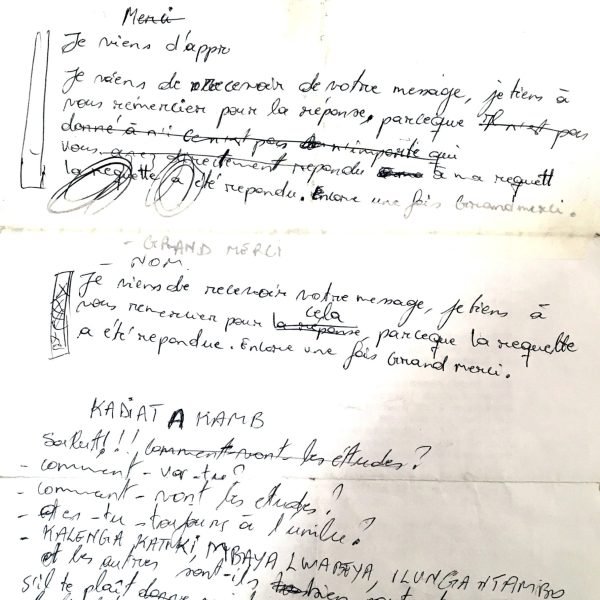 Merci
Je viens d'appr
Je viens de recevoir de votre message, je tiens à
vous remercier pour la réponse, parceque il n'est pas
donné à n' ce n'est pas n'importe qui
vous avez directement repondu à ma requett
la requette a été repondu. Encore une fois Grand merci.
- GRAND MERCI
- NOM.
Je viens de recevoir votre message, je tiens à
cela
vous remercier pour la réponse, parceque la requette
a été repondue. Encore une fois Grand merci.
KADiAT A KAMB
Salut!!! comment vont les études?
- comment - vas-tu?
- comment - vont les etudes?
- et es - tu - toujours à l'unilu?
- KALENGA KATUKI MBAYA LWABEYA, ILUNGA NTAMBO
et les autres sont-ils bien
s'il te plaît donne